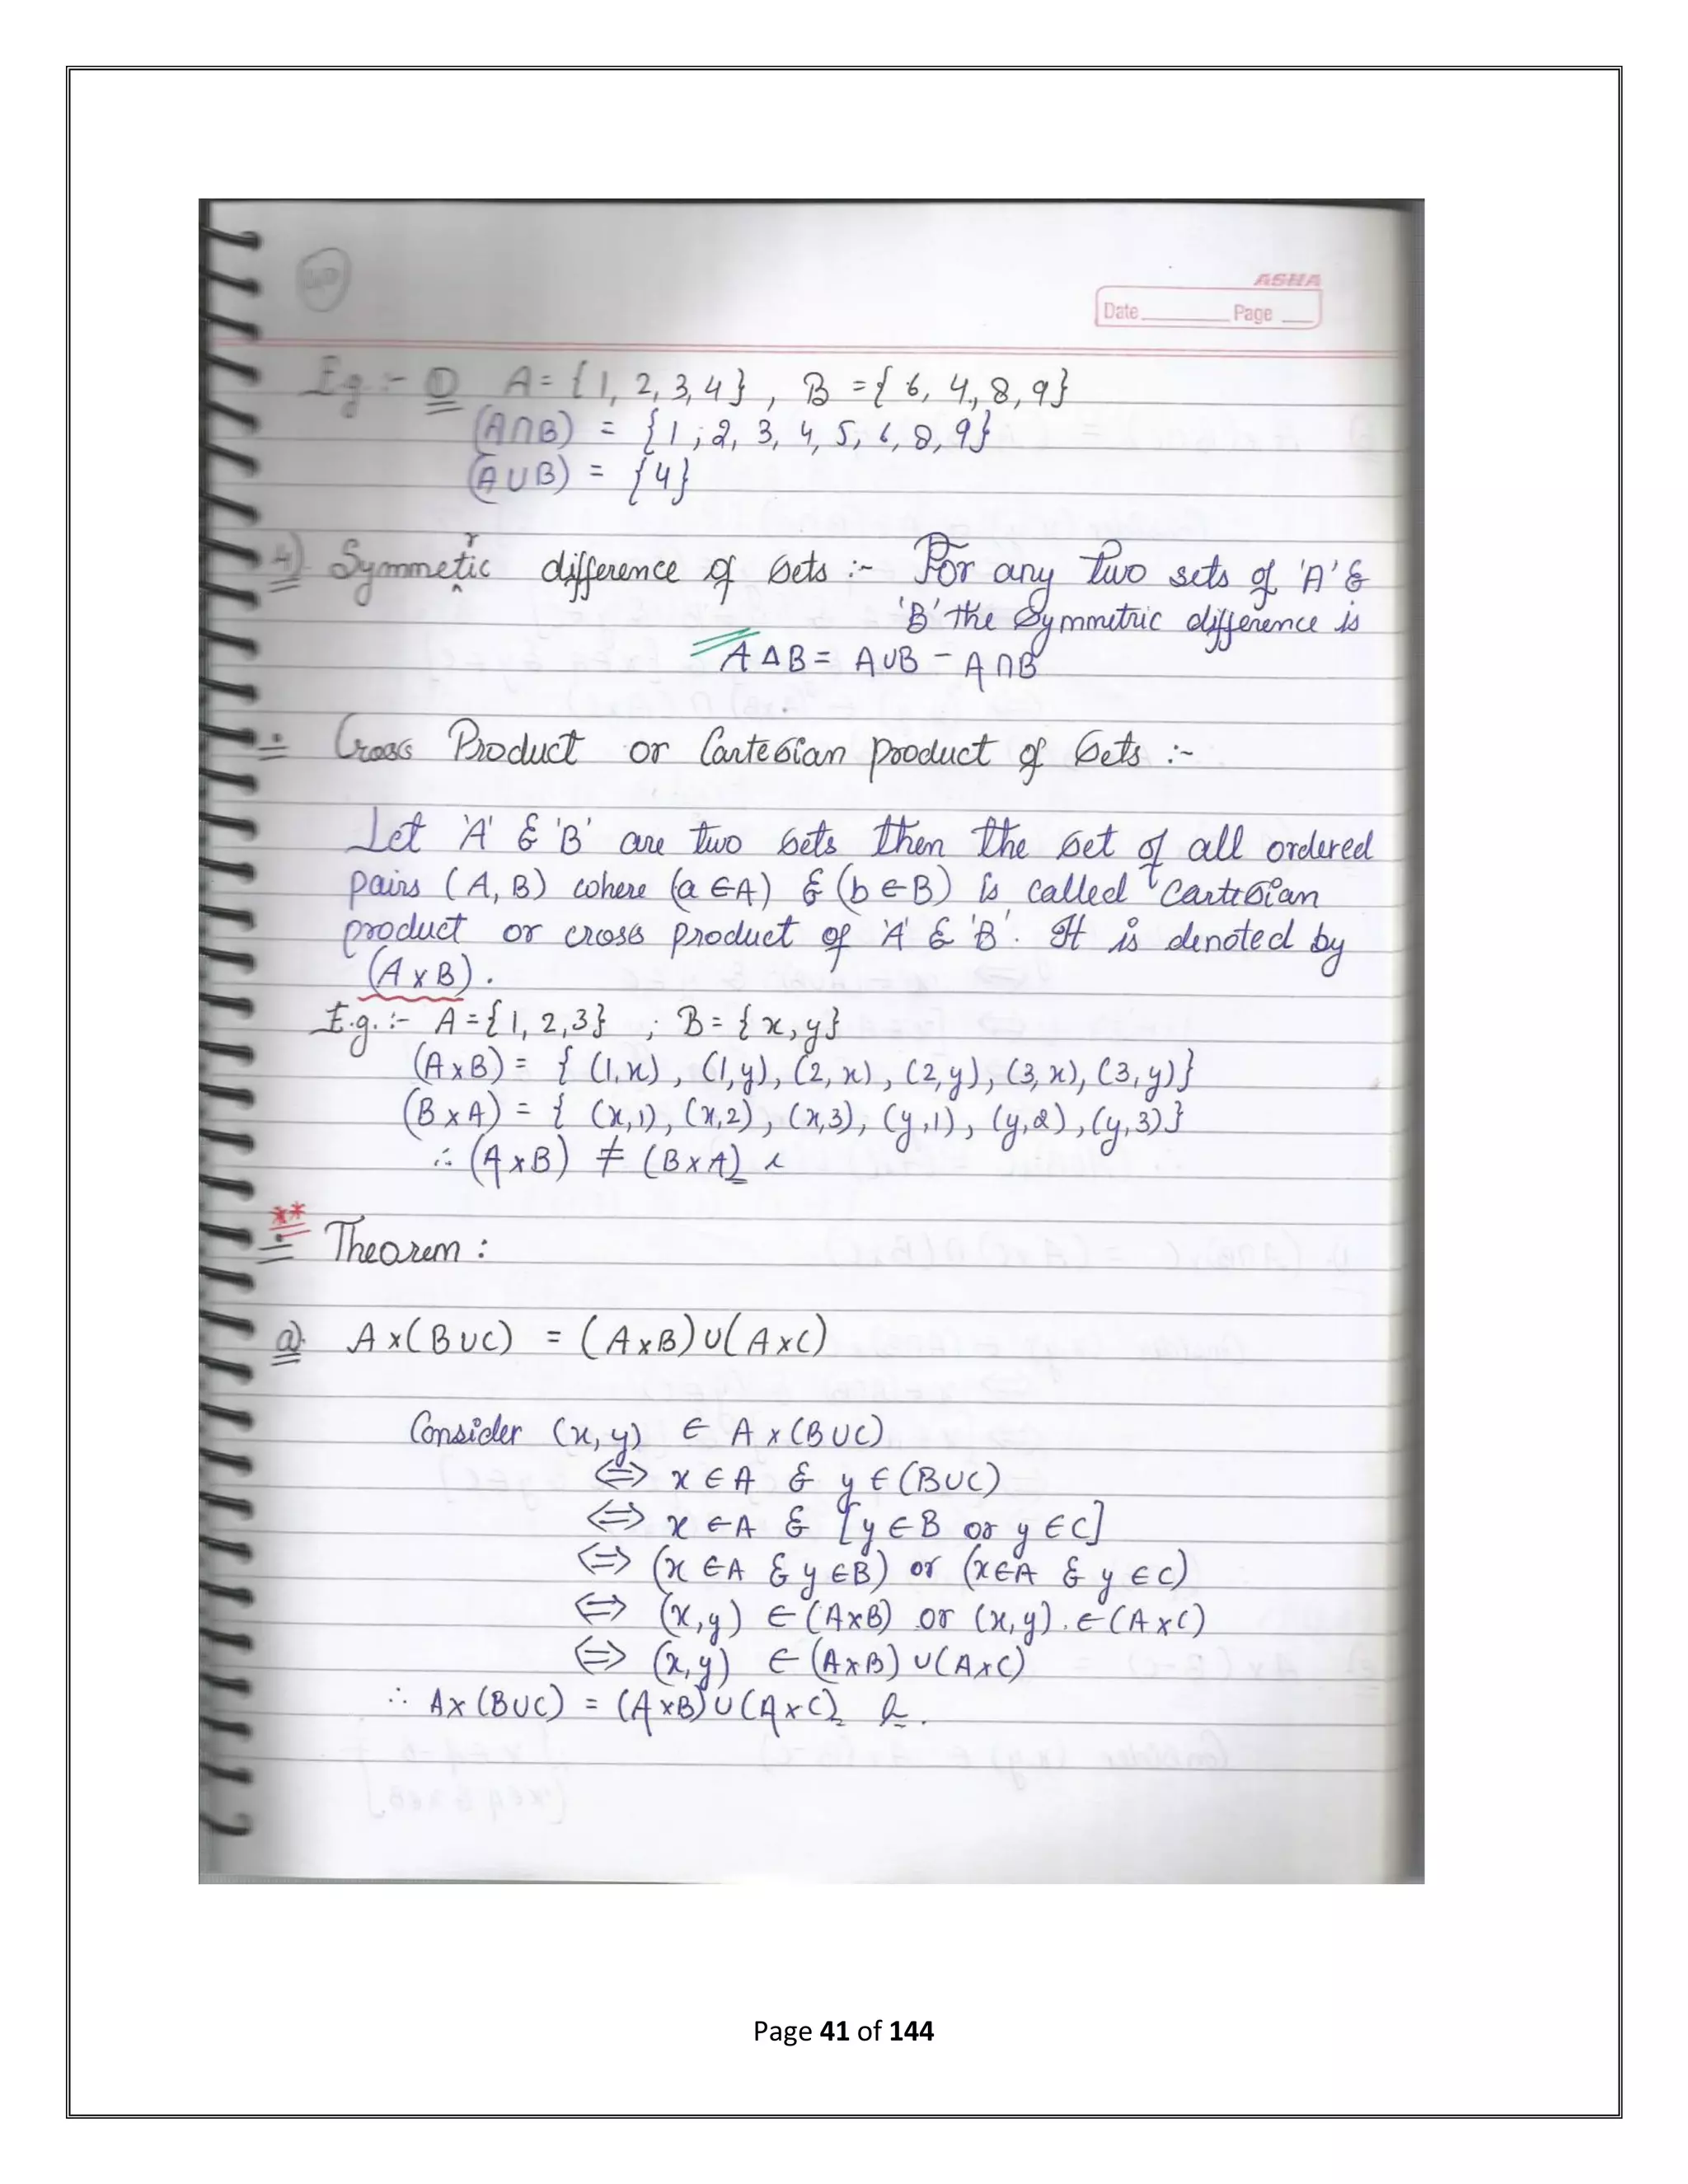 40
ASHA
Date Page
Eg :- ① A = { 1, 2, 3, 4 } , B = { 6, 4, 8, 9 }
(A∩B) = { 1, 2, 3, 4, 5, 6, 8, 9 }
(A∪B) = { 4 }
4) Symmetric difference of sets :- For any two sets of 'A' &
'B' the Symmetric difference is
A Δ B = A∪B - A∩B
÷ Cross Product or Cartesian product of sets :-
Let 'A' & 'B' are two sets then the set of all ordered
pairs (A, B) where (a ∈ A) & (b ∈ B) is called cartesian
product or cross product of 'A' & 'B'. It is denoted by
(A × B).
E.g. :- A = { 1, 2, 3 } ; B = { x, y }
(A × B) = { (1, x) , (1, y), (2, x) , (2, y), (3, x), (3, y) }
(B × A) = { (x, 1), (x, 2), (x, 3), (y, 1), (y, 2), (y, 3) }
∴ (A × B) ≠ (B × A)
** ÷ Theorem :
a). A × ( B ∪ C ) = ( A × B ) ∪ ( A × C )
Consider (x, y) ∈ A × (B ∪ C)
⇔ x ∈ A & y ∈ (B ∪ C)
⇔ x ∈ A & [y ∈ B or y ∈ C]
⇔ (x ∈ A & y ∈ B) or (x ∈ A & y ∈ C)
⇔ (x, y) ∈ (A × B) or (x, y) ∈ (A × C)
⇔ (x, y) ∈ (A × B) ∪ (A × C)
∴ A × (B ∪ C) = (A × B) ∪ (A × C)
Page 41 of 144